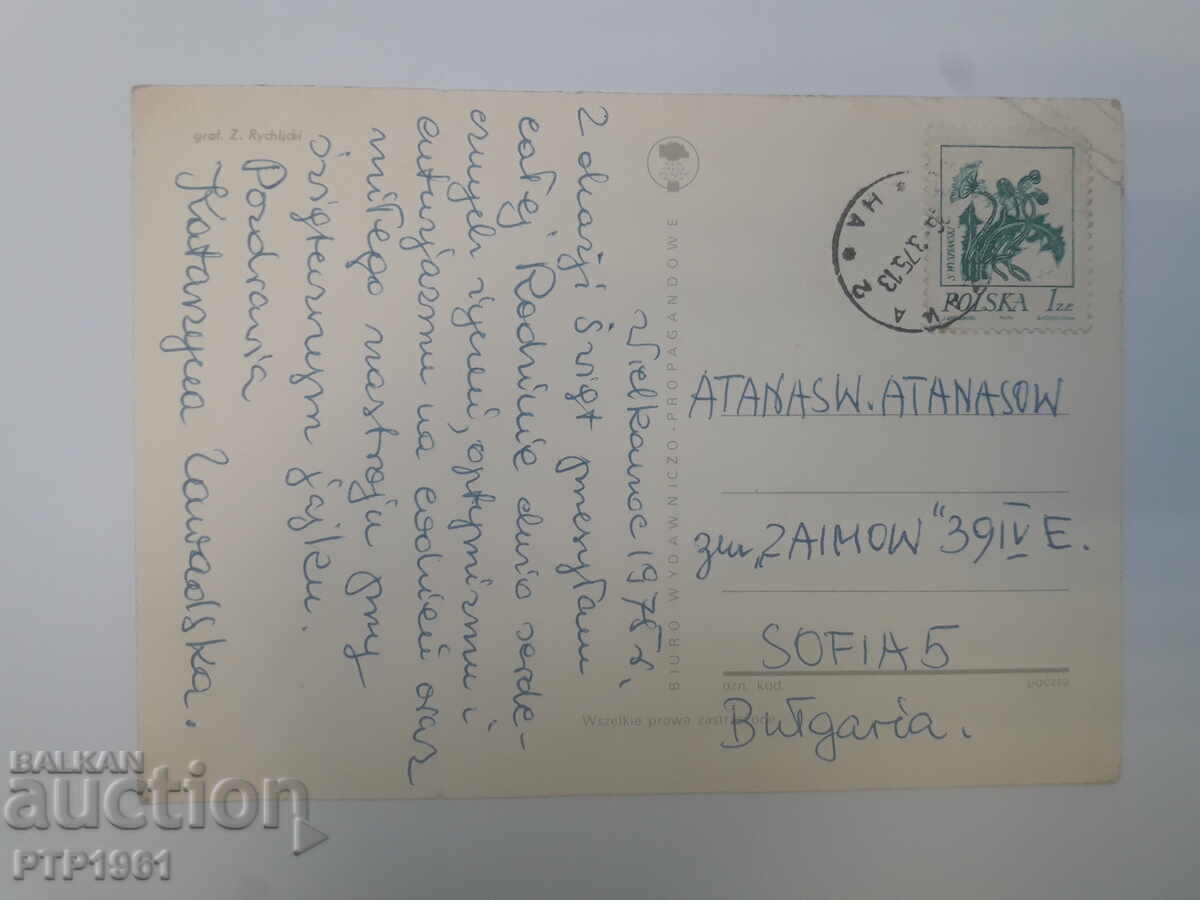 graf. Z. Rychlicki
Wielkanoc 1975 r.
Z okazji Świąt przesyłam
całej Rodzinie dużo serde-
cznych życzeń, optymizmu i
entuzjazmu na codzień oraz
miłego nastroju przy
świątecznym jajku.
Pozdrawia
Katarzyna Zawadzka.
BIURO WYDAWNICZO-PROPAGANDOWE
POLSKA 1ZŁ
3.75.13
ATANAS W. ATANASOW
"ZAIMOW" 39 IV E.
SOFIA 5
dzn. kod
poczta
Wszelkie prawa zastrzeżone
Bułgaria.
BALKAN
auction
PTP1961